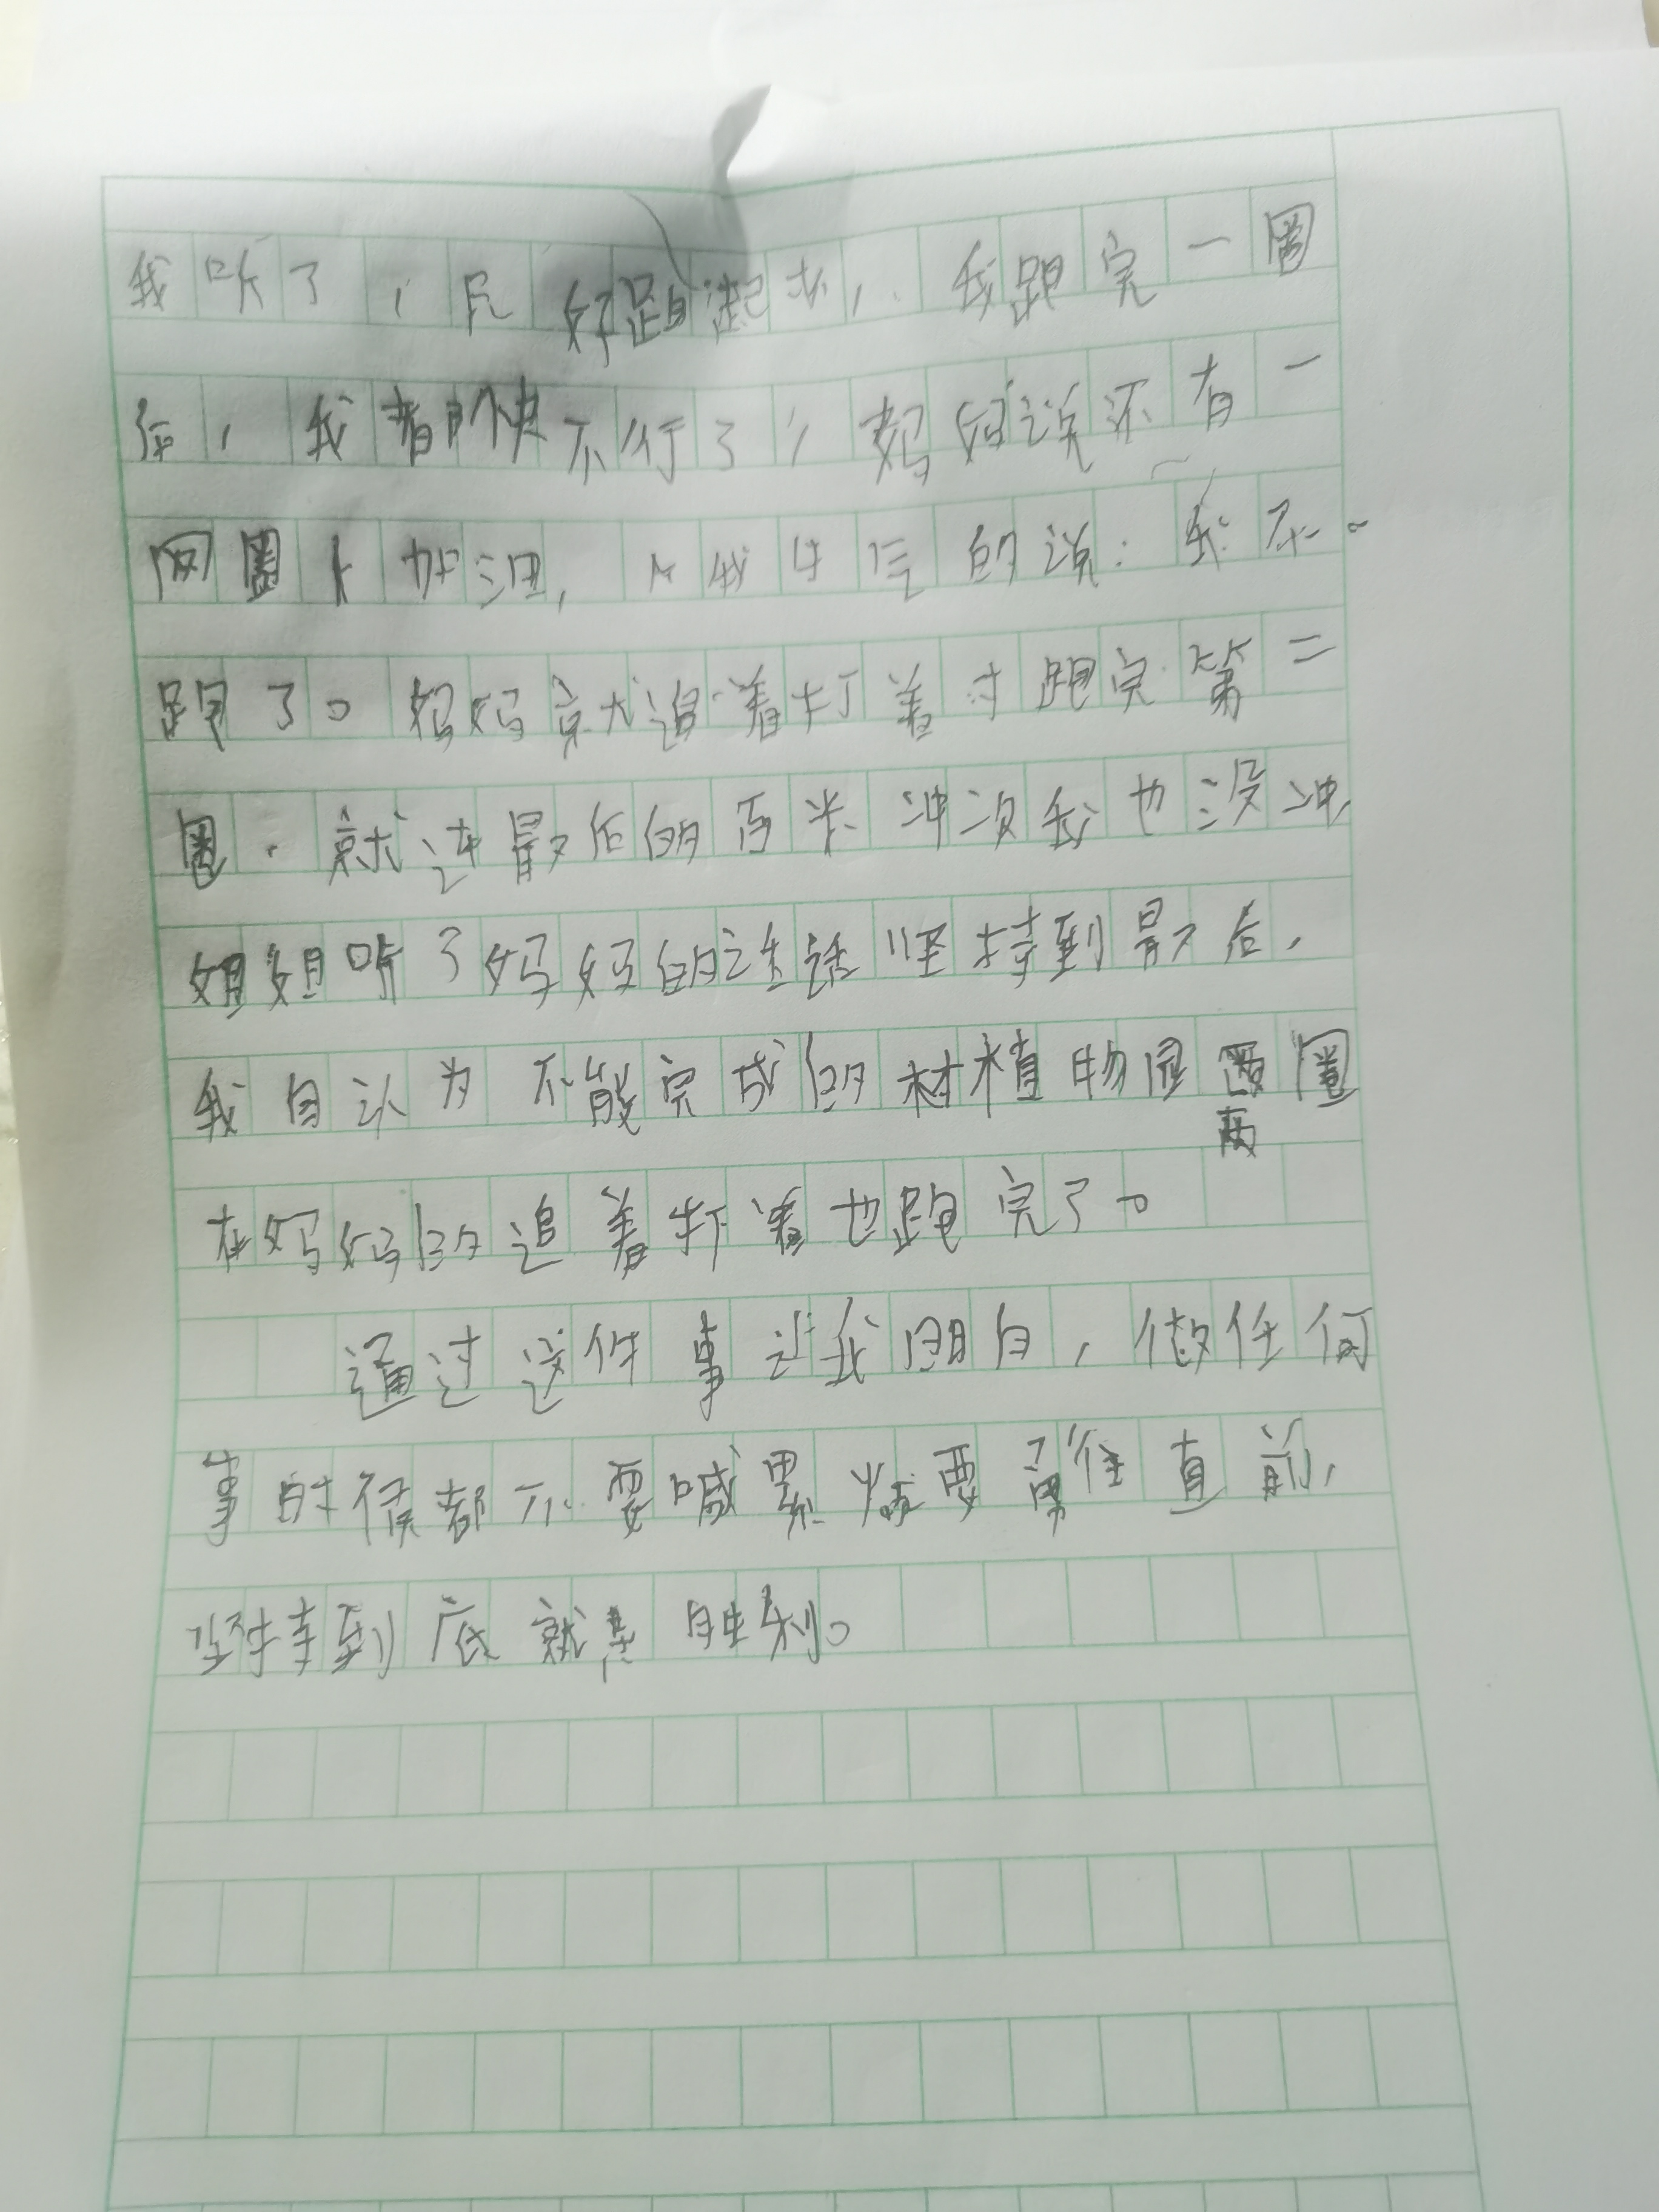 我听了,只好跑起来,我跑完一圈
后,我都快不行了,妈妈说还有一
圈加油,我生气的说:我不
跑了。妈妈就追着打着才跑完第二
圈.就连最后的百米冲次我也没冲
姐姐听了妈妈的话话坚持到最后,
我自认为不能完成的植物园两圈
在妈妈的追着打着也跑完了。
通过这件事让我明白,做任何
事时候都不要喊累要勇往直前,
坚持到底就是胜利。